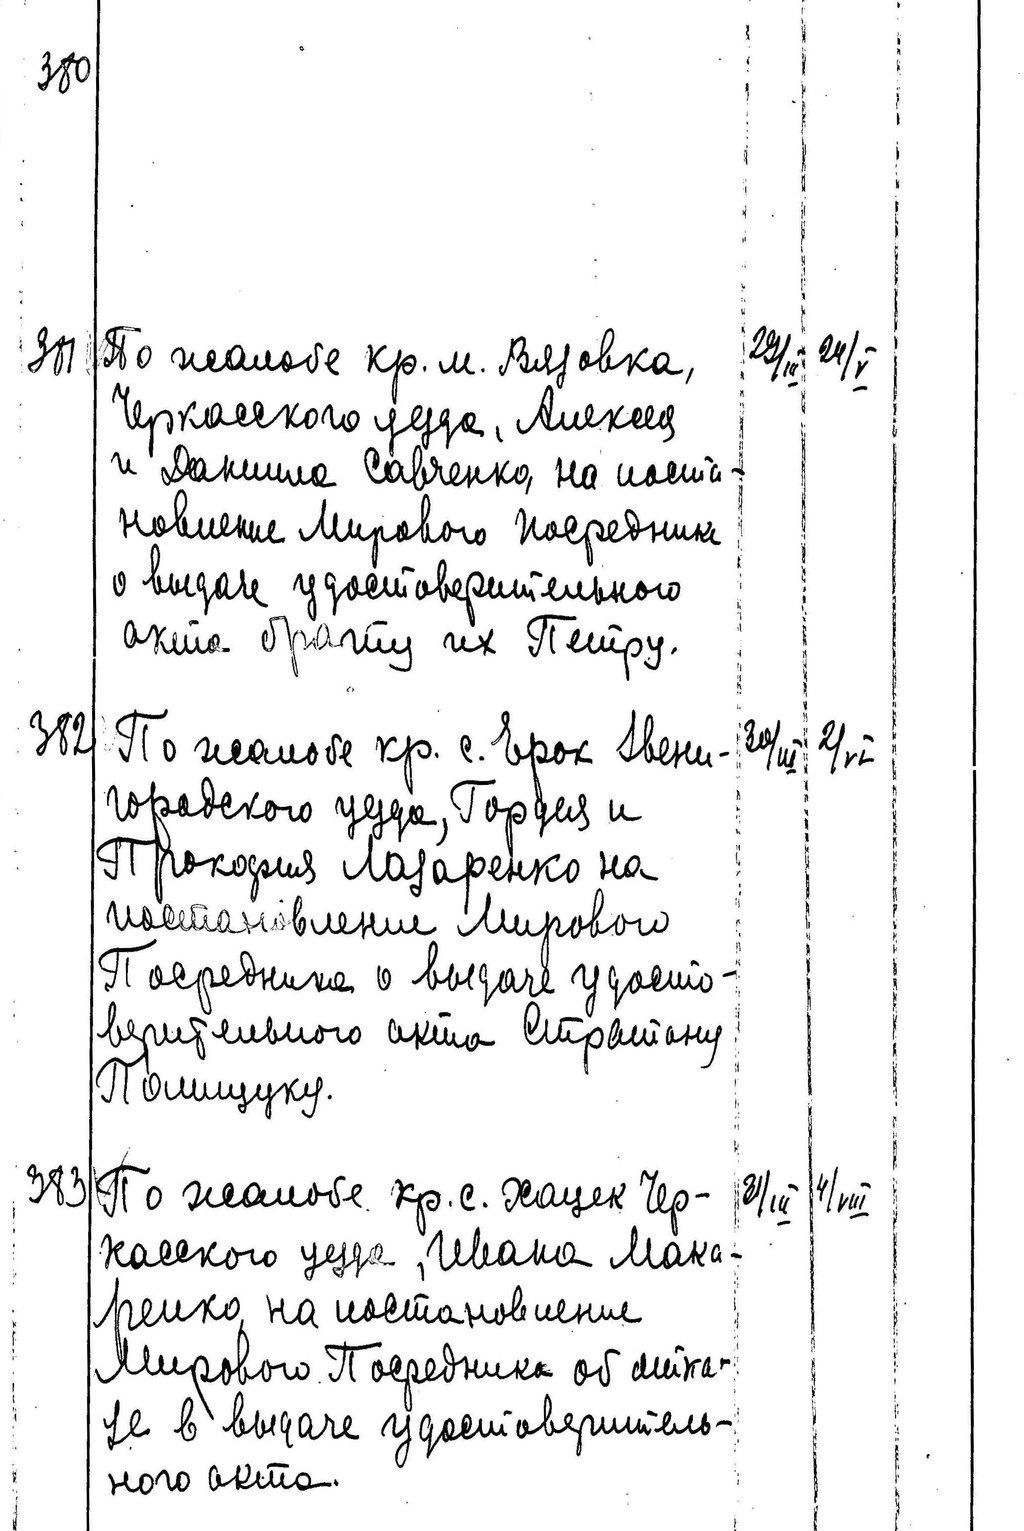 380
381 По жалобе кр. м. Вязовка, 29/III 24/V
Черкасского уезда, Алексея
и Даниила Савченко, на поста-
новление Мирового Посредника
о выдаче удостоверительного
акта брату их Петру.
382 По жалобе кр. с. Ерок Звени- 30/III 2/VI
городского уезда, Гордея и
Прокофия Лазаренко на
постановление Мирового
Посредника о выдаче удосто-
верительного акта Стратону
Полищуку.
383 По жалобе кр. с. Хацек Чер- 31/III 4/VIII
касского уезда, Ивана Мака-
ренко, на постановление
Мирового Посредника об отка-
зе в выдаче удостоверитель-
ного акта.